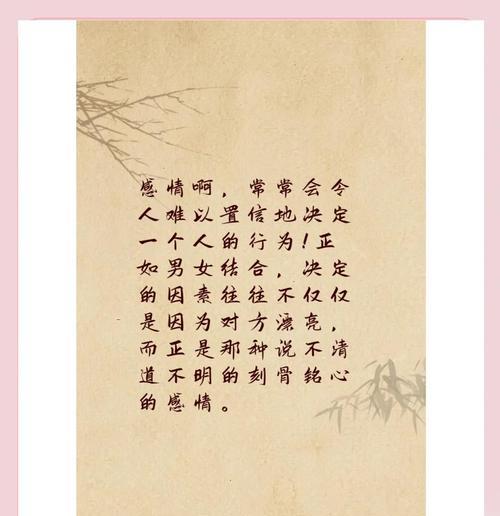 感情啊，常常会令
人难以置信地决定
一个人的行为！正
如男女结合，决定
的因素往往不仅仅
是因为对方漂亮，
而正是那种说不清
道不明的刻骨铭心
的感情。